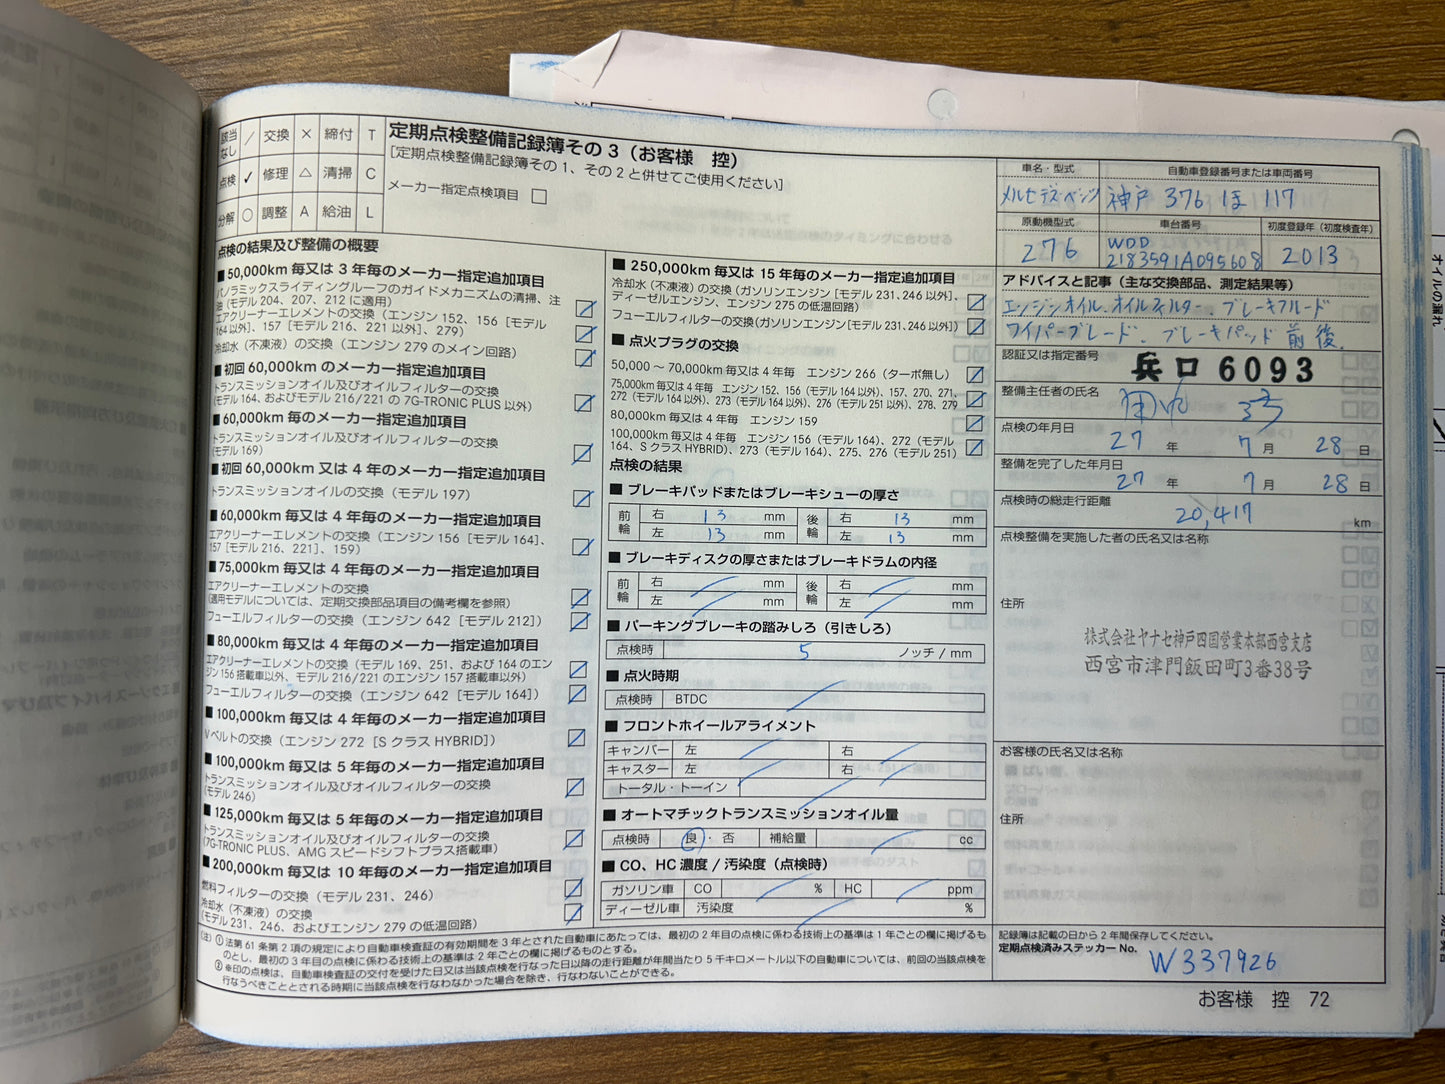 該当なし / 交換 × 締付 T
点検 ✓ 修理 △ 清掃 C
分解 ○ 調整 A 給油 L
定期点検整備記録簿その3（お客様 控）
[定期点検整備記録簿その1、その2と併せてご使用ください]
メーカー指定点検項目 □
点検の結果及び整備の概要
■50,000km 毎又は3年毎のメーカー指定追加項目
パノラミックスライディングルーフのガイドメカニズムの清掃、注
油（モデル 204、207、212 に適用）
エアクリーナーエレメントの交換（エンジン 152、156［モデル
164以外］、157［モデル 216、221 以外］、279）
冷却水（不凍液）の交換（エンジン 279 のメイン回路）
■初回 60,000km のメーカー指定追加項目
トランスミッションオイル及びオイルフィルターの交換
(モデル 164、およびモデル 216/221 の 7G-TRONIC PLUS 以外)
■60,000km 毎のメーカー指定追加項目
トランスミッションオイル及びオイルフィルターの交換
(モデル 169)
■初回 60,000km 又は4年毎のメーカー指定追加項目
トランスミッションオイルの交換（モデル 197）
■60,000km 毎又は4年毎のメーカー指定追加項目
エアクリーナーエレメントの交換（エンジン 156［モデル 164］、
157［モデル 216、221］、159）
■75,000km 毎又は4年毎のメーカー指定追加項目
エアクリーナーエレメントの交換
(適用モデルについては、定期交換部品項目の備考欄を参照）
フューエルフィルターの交換（エンジン 642［モデル 212］）
■80,000km 毎又は4年毎のメーカー指定追加項目
エアクリーナーエレメントの交換（モデル 169、251、および 164 のエン
ジン 156 搭載車以外、モデル 216/221 のエンジン 157 搭載車以外）
フューエルフィルターの交換（エンジン 642［モデル 164］）
■100,000km 毎又は4年毎のメーカー指定追加項目
Vベルトの交換（エンジン 272［S クラス HYBRID］）
■100,000km 毎又は5年毎のメーカー指定追加項目
トランスミッションオイル及びオイルフィルターの交換
(モデル 246)
■125,000km 毎又は5年毎のメーカー指定追加項目
トランスミッションオイル及びオイルフィルターの交換
(7G-TRONIC PLUS、AMG スピードシフトプラス搭載車）
■200,000km 毎又は10年毎のメーカー指定追加項目
燃料フィルターの交換（モデル 231、246）
冷却水（不凍液）の交換
(モデル 231、246、およびエンジン 279 の低温回路）
■250,000km 毎又は15年毎のメーカー指定追加項目
冷却水（不凍液）の交換（ガソリンエンジン［モデル 231、246 以外］、
ディーゼルエンジン、エンジン 275 の低温回路）
フューエルフィルターの交換（ガソリンエンジン［モデル 231、246 以外］）
■点火プラグの交換
50,000 ～ 70,000km 毎又は4年毎 エンジン 266（ターボ無し）
75,000km 毎又は4年毎 エンジン 152、156（モデル 164 以外）、157、270、271、
272（モデル 164 以外）、273（モデル 164 以外）、276（モデル 251 以外）、278、279
80,000km 毎又は4年毎 エンジン 159
100,000km 毎又は4年毎 エンジン 156（モデル 164）、272（モデル
164、S クラス HYBRID）、273（モデル 164）、275、276（モデル 251）
点検の結果
■ブレーキパッドまたはブレーキシューの厚さ
前輪 右 13 mm 後輪 右 13 mm
左 13 mm 左 13 mm
■ブレーキディスクの厚さまたはブレーキドラムの内径
前輪 右 mm 後輪 右 mm
左 mm 左 mm
■パーキングブレーキの踏みしろ（引きしろ）
点検時 5 ノッチ / mm
■点火時期
点検時 BTDC
■フロントホイールアライメント
キャンバー 左 右
キャスター 左 右
トータル・トーイン
■オートマチックトランスミッションオイル量
点検時 良・否 補給量 cc
■CO、HC 濃度 / 汚染度（点検時）
ガソリン車 CO % HC ppm
ディーゼル車 汚染度 %
(注) ① 法第 61 条第 2 項の規定により自動車検査証の有効期間を 3 年とされた自動車にあたっては、最初の 2 年目の点検に係わる技術上の基準は 1 年ごとの欄に掲げるも
のとし、最初の 3 年目の点検に係わる技術上の基準は 2 年ごとの欄に掲げるものとする。
② ※印の点検は、自動車検査証の交付を受けた日又は当該点検を行なった日以降の走行距離が年間当たり 5 千キロメートル以下の自動車については、前回の当該点検を
行なうべきこととされる時期に当該点検を行なわなかった場合を除き、行なわないことができる。
車名・型式 自動車登録番号または車両番号
メルセデス・ベンツ 神戸 376 ほ 117
原動機型式 車台番号 初度登録年（初度検査年）
276 WDD 2183591A095608 2013
アドバイスと記事（主な交換部品、測定結果等）
エンジンオイル、オイルフィルター ブレーキフルード
ワイパーブレード、ブレーキパッド 前後、
認証又は指定番号 兵口6093
整備主任者の氏名
点検の年月日
27 年 7 月 28 日
整備を完了した年月日
27 年 7 月 28 日
点検時の総走行距離
20,417 km
点検整備を実施した者の氏名又は名称
住所
株式会社ヤナセ神戸四国営業本部西宮支店
西宮市津門飯田町3番38号
お客様の氏名又は名称
住所
記録簿は記載の日から 2 年間保存してください。
定期点検済みステッカー No. W337926
お客様 控 72
オイルの漏れ